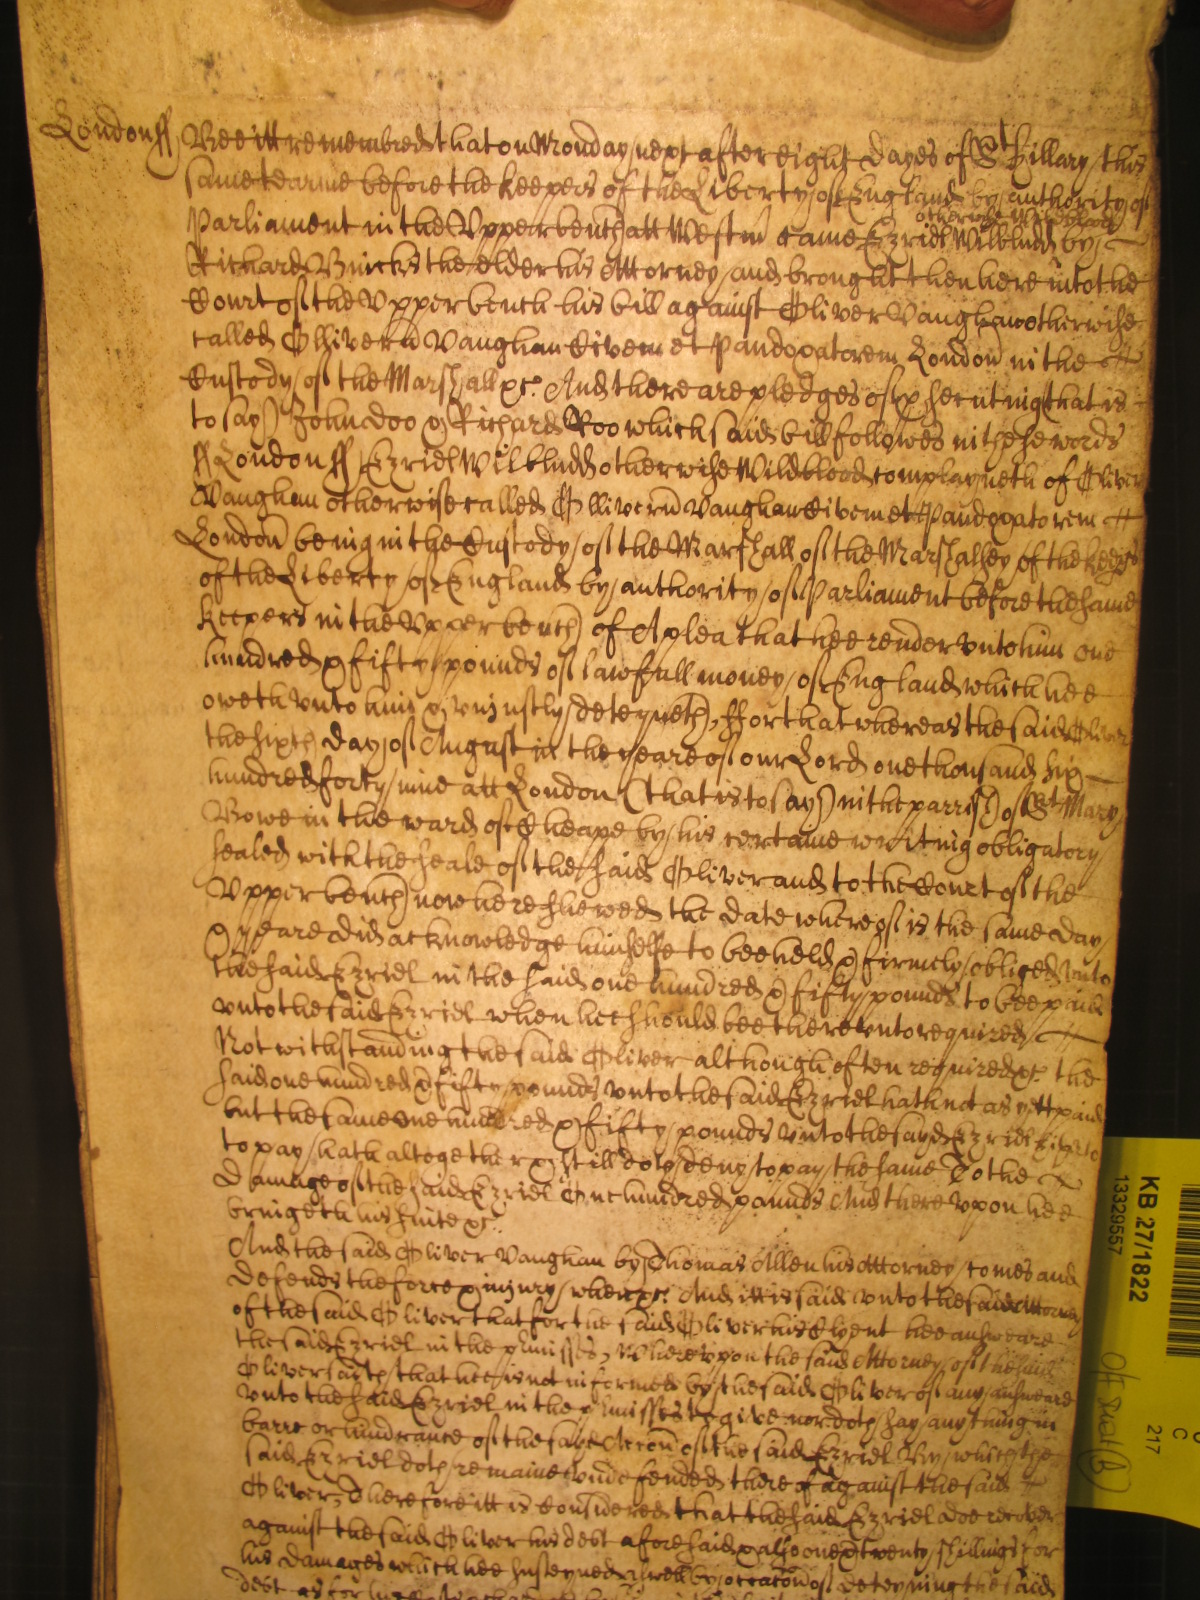 London ss Bee itt remembred that on Monday next after eight dayes of St Hillary this
same tearme before the keepers of the Liberty of England by authority of
otherwise Wildblood
Parliament in the Upper bench att Westm came Ezriell Wilbludd by
Richard Buicks the elder his Attorney and brought then here into the
Court of the Upper bench his bill against Oliver Vaughan otherwise
called Olliverū Vaughan Civem et Pandoxatorem London in the
Custody of the Marshall &c. And there are pledges of p̱secuting that is
to say John Doo & Richard Roo which said bill followes in these words
ss London ss Ezriell Wilbludd otherwise Wildblood complayneth of Oliver
Vaughan otherwise called Olliverū Vaughan Civem et Pandoxatorem
London being in the Custody of the Marshall of the Marshalsey of the keeps
of the Liberty of England by authority of Parliament before the same
keepers in the Upper bench of A plea that hee render unto him one
hundred & fifty pounds of lawfull money of England which hee
oweth unto him & uniustly deteyneth, ffor that whereas the said Oliver
the sixth day of August in the yeare of our Lord one thousand six
hundred forty nine att London (that is to say) in the parrish of St Mary
Bowe in the ward of Cheape by his certaine writing obligatory
sealed with the seale of the said Oliver and to the Court of the
Upper bench now here shewed the date whereof is the same day
& yeare did acknowledge himselfe to bee held & firmely obliged unto
the said Ezriell in the said one hundred & fifty pounds to bee paid
unto the said Ezriell when hee should bee thereunto required
Notwithstanding the said Oliver although often required &c. the
said one hundred & fifty pounds unto the said Ezriell hath not as yett paid
but the same one hundred & fifty pounds unto the sayd Ezriell hitherto
to pay hath altogether & still doth deny to pay the same To the
Damage of the said Ezriell One hundred pounds And thereupon hee
bringeth his suite &c.
And the said Oliver Vaughan by Thomas Allen his Attorney comes and
defends the force & iniury when &c. And itt is said unto the said Attorney
of the said Oliver that for the said Oliver his Clyent hee answeare
the said Ezriell in the p̱misses, Whereupon the said Attorney of the said
Oliver saith that hee is not informed by the said Oliver of any answeare
unto the said Ezriell in the p̱misses to give nor doth say any thing in
barre or hindrance of the sayd Accon of the said Ezriell By which the
said Ezriell doth remaine undefended thereof against the said
Oliver, Therefore itt is Considered that the said Ezriell doe recover
against the said Oliver his debt aforesaid & alsoe one & twenty shillings for
his damages which hee susteyned aswell by occacon of deteyning the said
debt as for
KB 27/1822
13329557
C
217